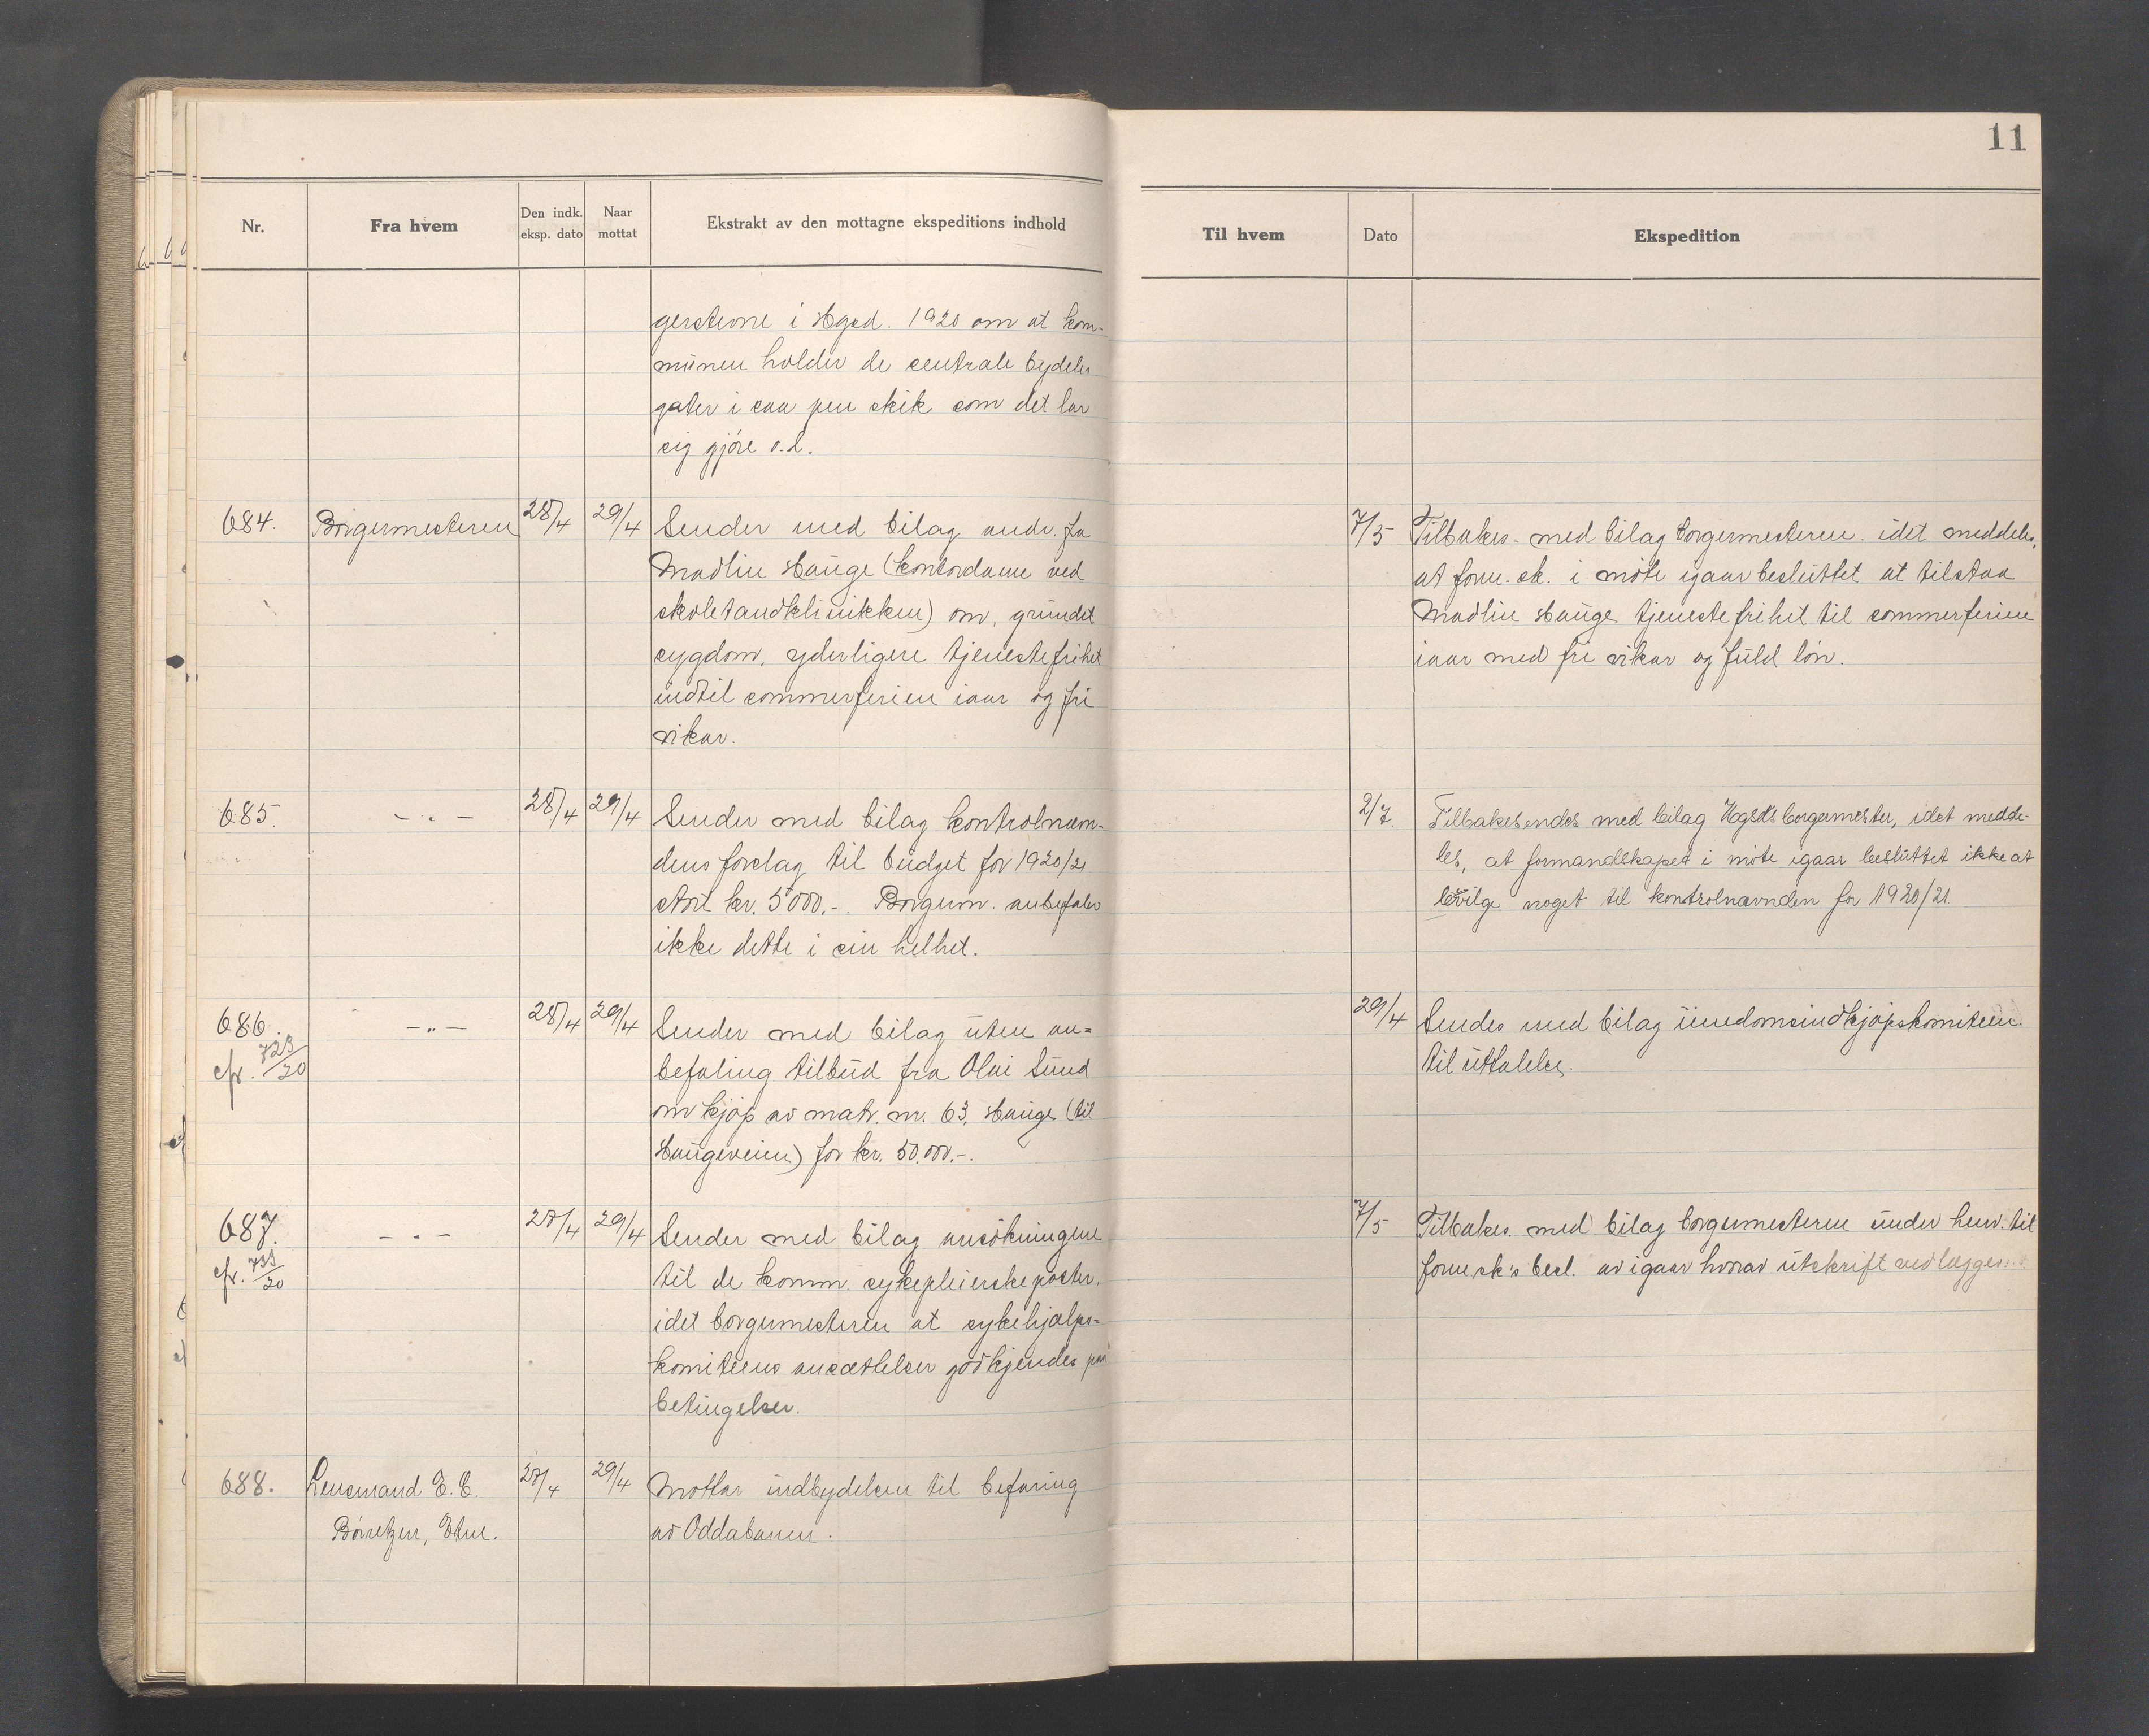 11
Nr. Fra hvem Den indk. eksp. dato Naar mottat Ekstrakt av den mottagne ekspeditions indhold
Til hvem Dato Ekspedition
i Hgsd. 1920 om at kom-
munen holder de centrale bydeles
gater i saa pen skik som det lar
sig gjöre o.l.
684. Borgermesteren 28/4 29/4 Sender med bilag andr. fra
Madlin Hauge (kontordame ved
skoletandklinikken) om, grundet
sygdom, yderligere tjenestefrihet
indtil sommerferien iaar og fri
vikar.
7/5 Tilbakes. med bilag borgermesteren. idet meddeles,
at form.sk. i möte igaar besluttet at tilstaa
Madlin Hauge tjenestefrihet til sommerferien
iaar med fri vikar og fuld lön.
685. -"- 28/4 29/4 Sender med bilag kontrolnæm-
dens forslag til budget for 1920/21
stort kr. 5000.-. Borgerm. anbefaler
ikke dette i sin helhet.
2/7. Tilbakesendes med bilag Hgsds borgermester, idet medde-
les, at formandskapet i möte igaar besluttet ikke at
bevilge noget til kontrolnævnden for 1920/21.
686. -"- 28/4 29/4 Sender med bilag uten an-
cfr. 723/20
befaling tilbud fra Olai Sund
om kjöp av matr. nr. 63, Hauge (til
Haugeveien) for kr. 50.000.-.
29/4 Sendes med bilag eiendomsindkjöpskomiteen
til uttalelse.
687. -"- 28/4 29/4 Sender med bilag ansökningene
cfr. 733/20
til de komm. sykepleierskeposter,
idet borgermesteren at sykehjælps-
komiteens ansættelser godkjendes paa
betingelser.
7/5 Tilbakes. med bilag borgermesteren under henv. til
form.sk's besl. av igaar hvorav utskrift vedlægges.
688. Lensmand E. E. 28/4 29/4 Mottar indbydelsen til befaring
Börretzen, Etne.
av Oddabanen.